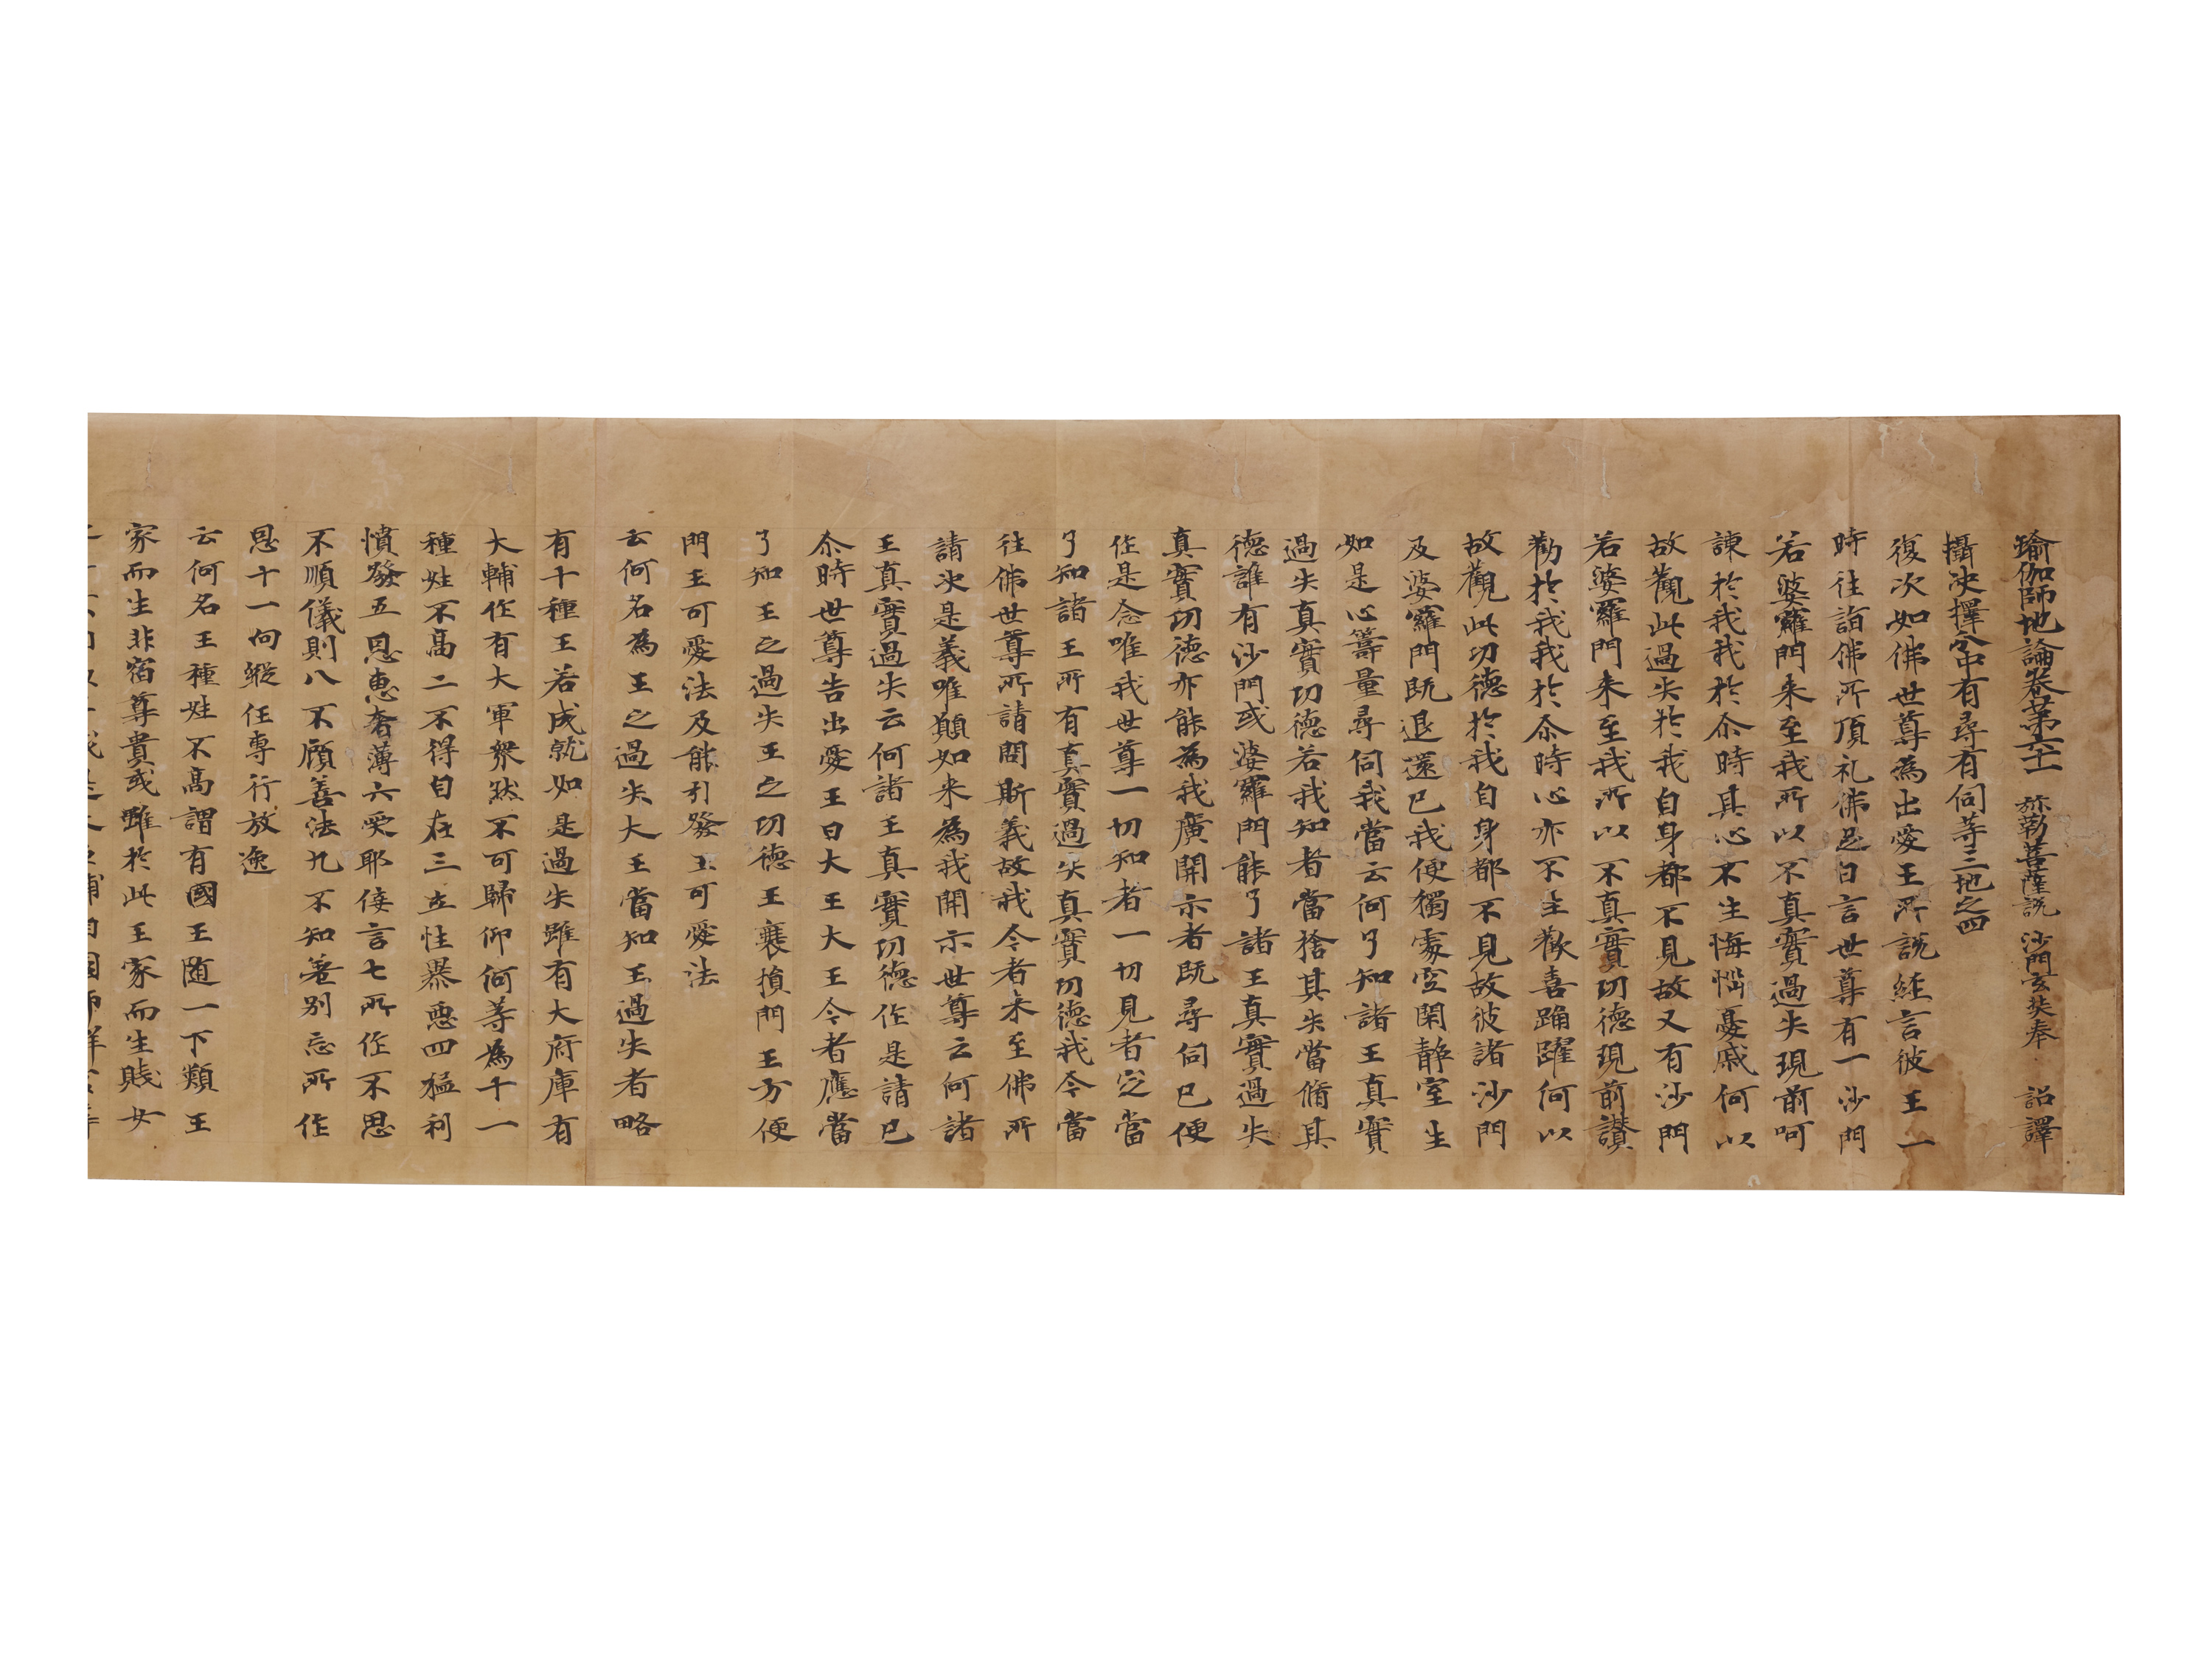 瑜伽師地論卷苐六十一 弥勒菩薩説 沙門玄奘奉 詔譯
攝决擇分中有尋有伺等三地之四
復次如佛世尊為出愛王所説經言彼王一
時往詣佛所頂礼佛足白言世尊有一沙門
若婆羅門来至我所以不真實過失現前呵
諫於我我於尒時其心不生悔惱憂慼何以
故觀此過失於我自身都不見故又有沙門
若婆羅門来至我所以不真實功德現前讃
勸於我我於尒時心亦不生歡喜踊躍何以
故觀此功德於我自身都不見故彼諸沙門
及婆羅門既退還已我便獨處空閑靜室生
如是心籌量尋伺我當云何了知諸王真實
過失真實功德若我知者當捨其失當脩其
德誰有沙門或婆羅門能了諸王真實過失
真實功德亦能為我廣開示者既尋伺已便
作是念唯我世尊一切知者一切見者定當
了知諸王所有真實過失真實功德我今當
往佛世尊所請問斯義故我今者来至佛所
請决是義唯願如来為我開示世尊云何諸
王真實過失云何諸王真實功德作是請已
尒時世尊告出愛王曰大王大王今者應當
了知王之過失王之功德王衰損門王方便
門王可愛法及能引發王可愛法
云何名為王之過失大王當知王過失者略
有十種王若成就如是過失雖有大府庫有
大輔佐有大軍衆然不可歸仰何等為十一
種姓不高二不得自在三立性暴惡四猛利
憤發五恩惠奢薄六受耶佞言七所作不思
不順儀則八不顧善法九不知差别忘所作
恩十一向縱任專行放逸
云何名王種姓不高謂有國王随一下類王
家而生非宿尊貴或雖於此王家而生賤女